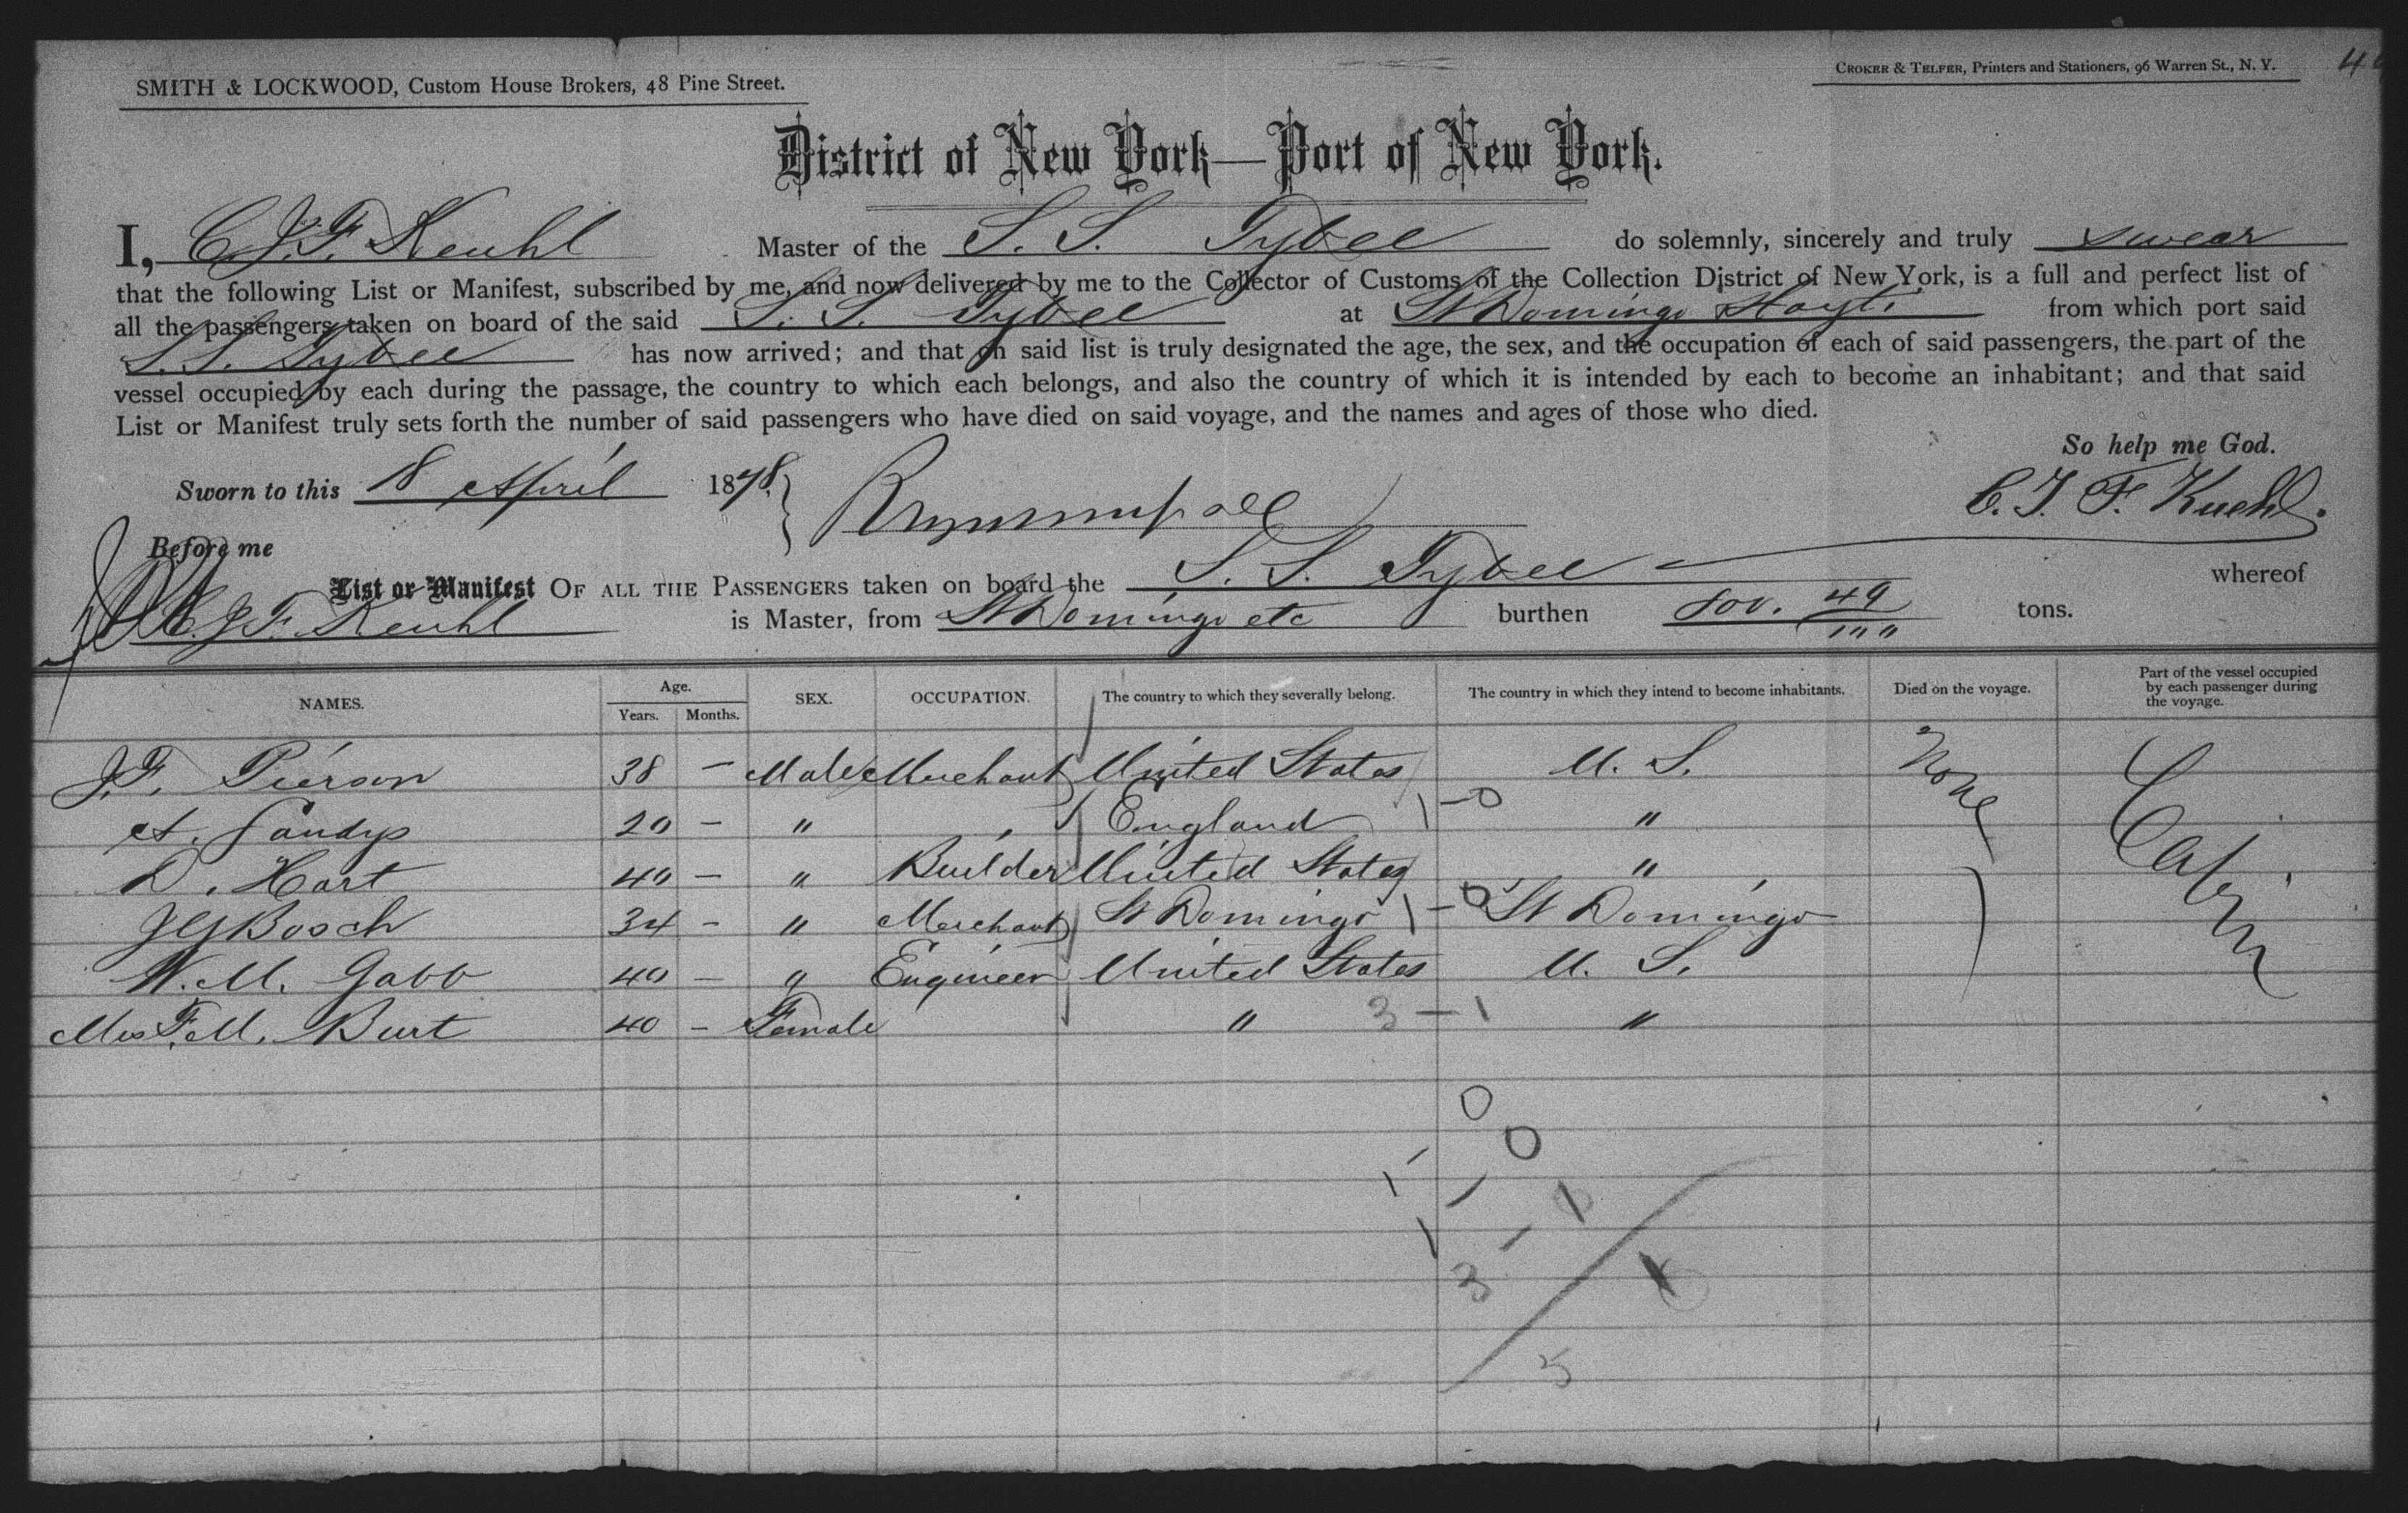 SMITH & LOCKWOOD, Custom House Brokers, 48 Pine Street.
CROKER & TELFER, Printers and Stationers, 96 Warren St., N. Y.
District of New York—Port of New York.
I, C J. F. Keuhl Master of the S. S. Tybee do solemnly, sincerely and truly swear
that the following List or Manifest, subscribed by me, and now delivered by me to the Collector of Customs of the Collection District of New York, is a full and perfect list of
all the passengers taken on board of the said S. S. Tybee at St Domingo Hayti from which port said
S. S. Tybee has now arrived; and that on said list is truly designated the age, the sex, and the occupation of each of said passengers, the part of the
vessel occupied by each during the passage, the country to which each belongs, and also the country of which it is intended by each to become an inhabitant; and that said
List or Manifest truly sets forth the number of said passengers who have died on said voyage, and the names and ages of those who died.
So help me God.
Sworn to this 18 April 1878.
C. J. F. Kuehl.
Before me
List or Manifest OF ALL THE PASSENGERS taken on board the S. S. Tybee whereof
C. J. F. Keuhl is Master, from St Domingo etc burthen 49 tons.
NAMES. Age. Years. Months. SEX. OCCUPATION. The country to which they severally belong. The country in which they intend to become inhabitants. Died on the voyage. Part of the vessel occupied by each passenger during the voyage.
J. F. Pierson 38 — Male Merchant United States U. S. None Cabin
A. Sandys 20 — " England 1 — 0 "
D. Hart 40 — " Builder United States "
J G Bosch 34 - " Merchant St Domingo 1 - 0 St Domingo
W. M. Gabb 40 — " Engineer United States U. S.
Mrs F. M. Burt 40 — Female " 3 — 1 "
1 - 0
1 - 0
3 - 1
5